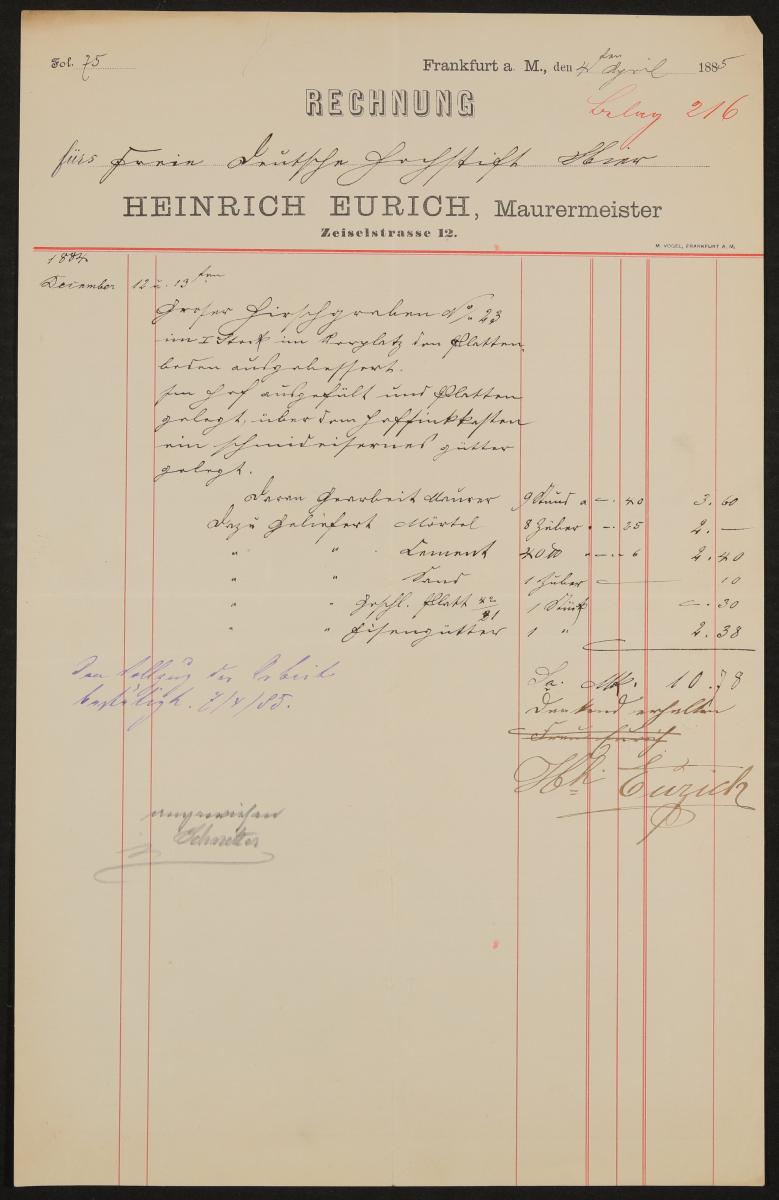 Fol. 75
Frankfurt a. M., den 4ten April 1885
RECHNUNG
Beleg 216
fürs Freie Deutsche Hochstift Hier
HEINRICH EURICH, Maurermeister
Zeiselstrasse 12.
M. VOGEL, FRANKFURT A. M.
1884
December 12 u. 13ten
Groser Hirschgraben No. 23
im I Stock im Vorplatz den Platten
boden ausgebessert.
Im Hof ausgefült und Platten
gelegt, über dem Hofsinkkasten
ein schmideisernes gütter
gelegt.
Daran Gearbeit Maurer 9 Stund a —. 40 3. 60
Dazu Geliefert Mörtel 8 Züber " —. 25 2. —
" " Cement 40 " —. 6 2. 40
" " Sand 1 Züber — 10
" " Geschl. Platt 42/21 1 Stück —. 30
" " Eisengütter 1 " 2. 38
Sa. Mk. 10. 78
Den Vollzug der Arbeit
bestätigt. 7/4/85.
Dankend erhalten
Hch. Eurich
angewiesen